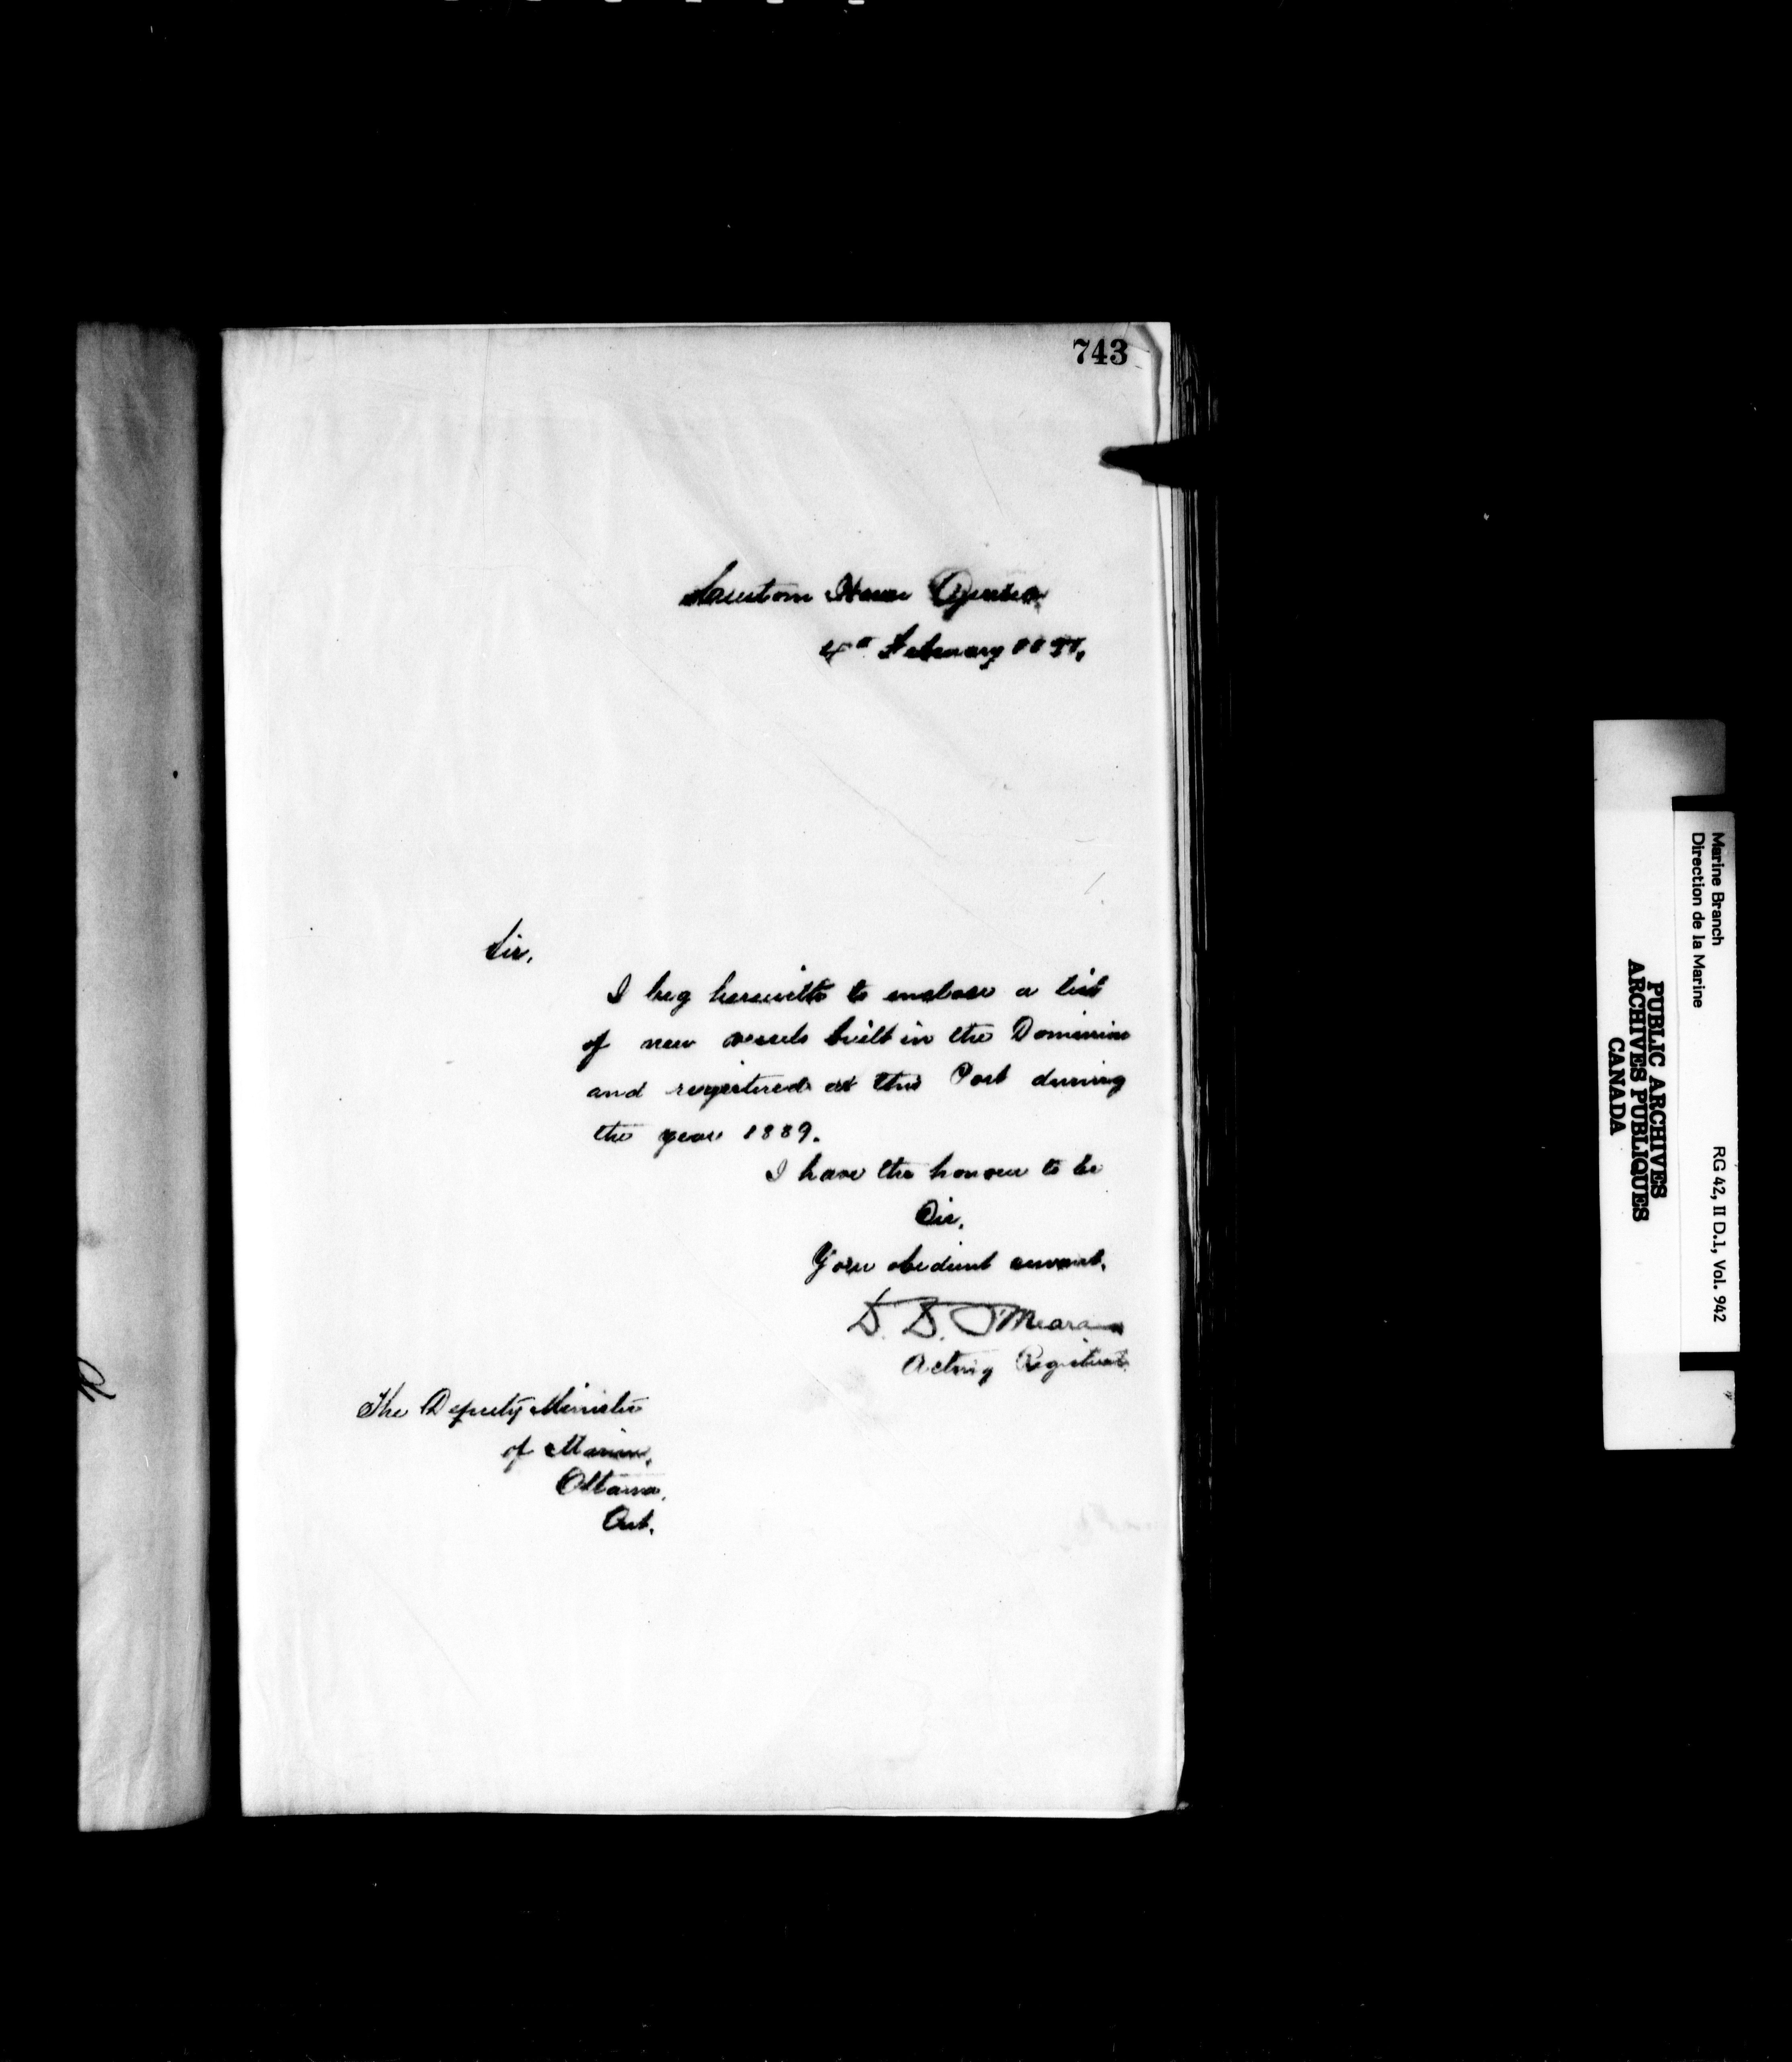 743
Custom House Quebec
4th February
Sir,
I beg herewith to enclose a list
of new vessels built in the Dominion
and registered at this Port during
the year 1889.
I have the honour to be
Sir,
Your obedient servant,
D. D. O'Meara
Acting Registrar.
The Deputy Minister
of Marine,
Ottawa,
Ont.
Marine Branch
Direction de la Marine
RG 42, II D.1, Vol. 942
PUBLIC ARCHIVES
ARCHIVES PUBLIQUES
CANADA